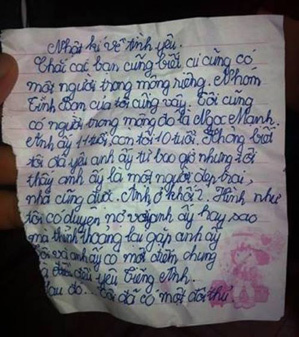 Nhật kí về tình yêu.
Chắc các bạn cũng biết cứ cũng có
một người trong mộng riêng. Nhóm
Tình Bạn của tôi cũng vậy. Tôi cũng
có người trong mộng đó là Ngọc Mạnh.
Anh ấy 11 tuổi, còn tôi 10 tuổi. Không biết
tôi đã yêu anh ấy từ bao giờ nhưng tôi
thấy anh ấy là một người đẹp trai,
nhà cũng được. Anh ở khối 7. Hình như
tôi có duyên nợ với anh ấy hay sao
mà thỉnh thoảng lại gặp anh ấy
Tôi và anh ấy có một điểm chung
là đều yêu Tiếng Anh.
Sau đó... Tôi đã có một đôi thứ